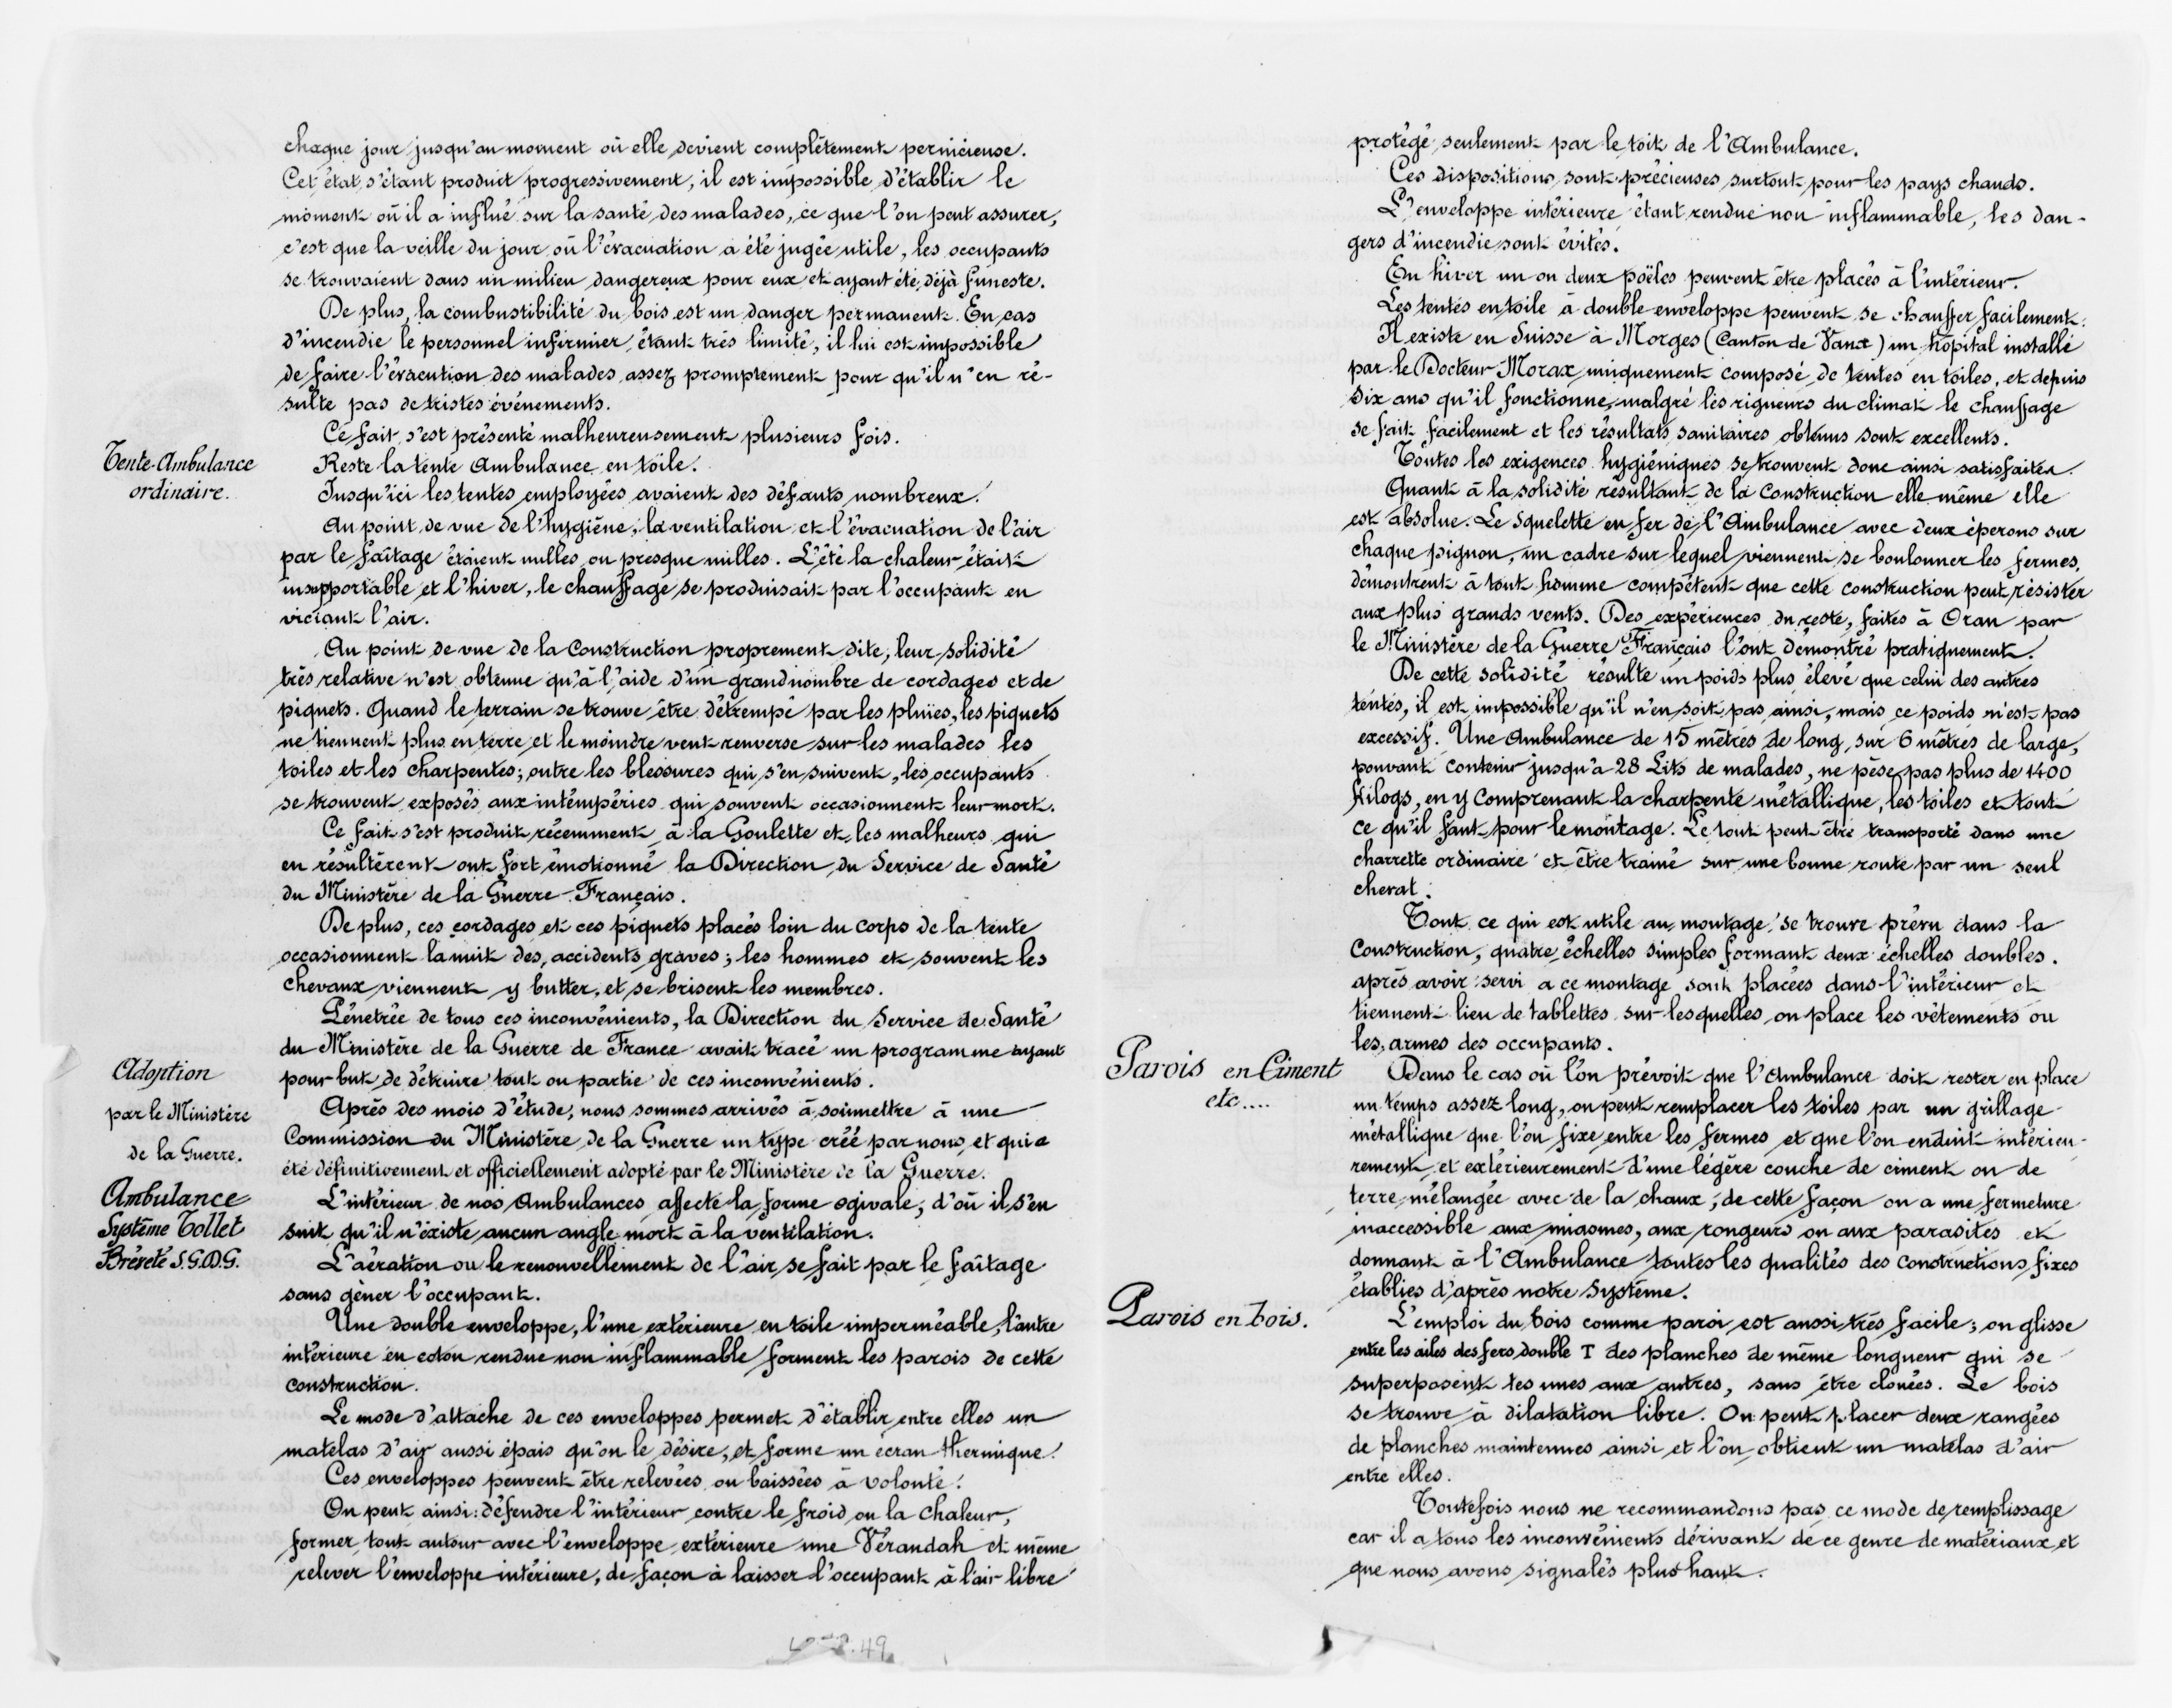 chaque jour jusqu'au moment où elle devient complètement pernicieuse.
Cet état s'étant produit progressivement, il est impossible d'établir le
moment où il a influé sur la santé des malades, ce que l'on peut assurer,
c'est que la veille du jour où l'évacuation a été jugée utile, les occupants
se trouvaient dans un milieu dangereux pour eux et ayant été déjà funeste.
De plus, la combustibilité du bois est un danger permanent. En cas
d'incendie le personnel infirmier étant très limité, il lui est impossible
de faire l'évacution des malades assez promptement pour qu'il n'en ré-
sulte pas de tristes événements.
Ce fait s'est présenté malheureusement plusieurs fois.
Tente-Ambulance
ordinaire.
Reste la tente Ambulance en toile.
Jusqu'ici les tentes employées avaient des défauts nombreux.
Au point de vue de l'hygiène, la ventilation et l'évacuation de l'air
par le faîtage étaient nulles ou presque nulles. L'été la chaleur était
insupportable et l'hiver, le chauffage se produisait par l'occupant en
viciant l'air.
Au point de vue de la Construction proprement dite, leur solidité
très relative n'est obtenue qu'à l'aide d'un grand nombre de cordages et de
piquets. Quand le terrain se trouve être détrempé par les pluies, les piquets
ne tiennent plus en terre et le moindre vent renverse sur les malades les
toiles et les charpentes; outre les blessures qui s'en suivent, les occupants
se trouvent exposés aux intempéries qui souvent occasionnent leur mort.
Ce fait s'est produit récemment à la Goulette et les malheurs qui
en résultèrent ont fort émotionné la Direction du Service de Santé
du Ministère de la Guerre Français.
De plus, ces cordages et ces piquets placés loin du corps de la tente
occasionnent la nuit des accidents graves; les hommes et souvent les
chevaux viennent y butter et se brisent les membres.
Pénétrée de tous ces inconvénients, la Direction du Service de Santé
du Ministère de la Guerre de France avait tracé un programme ayant
pour but de détruire tout ou partie de ces inconvénients.
Adoption
par le Ministère
de la Guerre.
Après des mois d'étude, nous sommes arrivés à soumettre à une
Commission du Ministère de la Guerre un type créé par nous et qui a
été définitivement et officiellement adopté par le Ministère de la Guerre.
Ambulance
Système Tollet
Brèveté S.G.D.G.
L'intérieur de nos Ambulances affecte la forme ogivale, d'où il s'en
suit qu'il n'existe aucun angle mort à la ventilation.
L'aération ou le renouvellement de l'air se fait par le faîtage
sans gêner l'occupant.
Une double enveloppe, l'une extérieure en toile imperméable, l'autre
intérieure en coton rendue non inflammable forment les parois de cette
construction.
Le mode d'attache de ces enveloppes permet d'établir entre elles un
matelas d'air aussi épais qu'on le désire, et forme un écran thermique.
Ces enveloppes peuvent être relevées ou baissées à volonté.
On peut ainsi: défendre l'intérieur contre le froid ou la chaleur,
former tout autour avec l'enveloppe extérieure une Vérandah et même
relever l'enveloppe intérieure, de façon à laisser l'occupant à l'air libre
49
protégé seulement par le toit de l'Ambulance.
Ces dispositions sont précieuses surtout pour les pays chauds.
L'enveloppe intérieure étant rendue non inflammable, les dan-
gers d'incendie sont évités.
En hiver un ou deux poëles peuvent être placés à l'intérieur.
Les tentes en toile à double enveloppe peuvent se chauffer facilement.
Il existe en Suisse à Morges (Canton de Vaux) un hôpital installé
par le Docteur Morax uniquement composé de tentes en toiles, et depuis
dix ans qu'il fonctionne, malgré les rigueurs du climat le chauffage
se fait facilement et les résultats sanitaires obtenus sont excellents.
Toutes les exigences hygiéniques se trouvent donc ainsi satisfaites.
Quant à la solidité résultant de la Construction elle même elle
est absolue. Le squelette en fer de l'Ambulance avec deux éperons sur
chaque pignon, un cadre sur lequel viennent se boulonner les fermes,
démontrent à tout homme compétent que cette construction peut résister
aux plus grands vents. Des expériences du reste, faites à Oran par
le Ministère de la Guerre Français l'ont démontré pratiquement.
De cette solidité résulte un poids plus élevé que celui des autres
tentes, il est impossible qu'il n'en soit pas ainsi, mais ce poids n'est pas
excessif. Une Ambulance de 15 mètres de long, sur 6 mètres de large,
pouvant contenir jusqu'à 28 Lits de malades, ne pèse pas plus de 1400
kilogs, en y comprenant la charpente métallique, les toiles et tout
ce qu'il faut pour le montage. Le tout peut être transporté dans une
charrette ordinaire et être trainé sur une bonne route par un seul
cheval.
Tout ce qui est utile au montage se trouve prévu dans la
Construction, quatre échelles simples formant deux échelles doubles.
après avoir servi a ce montage sont placées dans l'intérieur et
tiennent lieu de tablettes sur lesquelles on place les vêtements ou
les armes des occupants.
Parois en Ciment
etc....
Dans le cas où l'on prévoit que l'Ambulance doit rester en place
un temps assez long, on peut remplacer les toiles par un grillage
métallique que l'on fixe entre les fermes et que l'on enduit intérieu-
rement et extérieurement d'une légère couche de ciment ou de
terre mélangée avec de la chaux; de cette façon on a une fermeture
inaccessible aux miasmes, aux rongeurs ou aux parasites et
donnant à l'Ambulance toutes les qualités des Constructions fixes
établies d'après notre Système.
Parois en bois.
L'emploi du bois comme paroi est aussi très facile; on glisse
entre les ailes des fers double T des planches de même longueur qui se
superposent les unes aux autres, sans être clouées. Le bois
se trouve à dilatation libre. On peut placer deux rangées
de planches maintenues ainsi et l'on obtient un matelas d'air
entre elles.
Toutefois nous ne recommandons pas ce mode de remplissage
car il a tous les inconvénients dérivant de ce genre de matériaux et
que nous avons signalés plus haut.